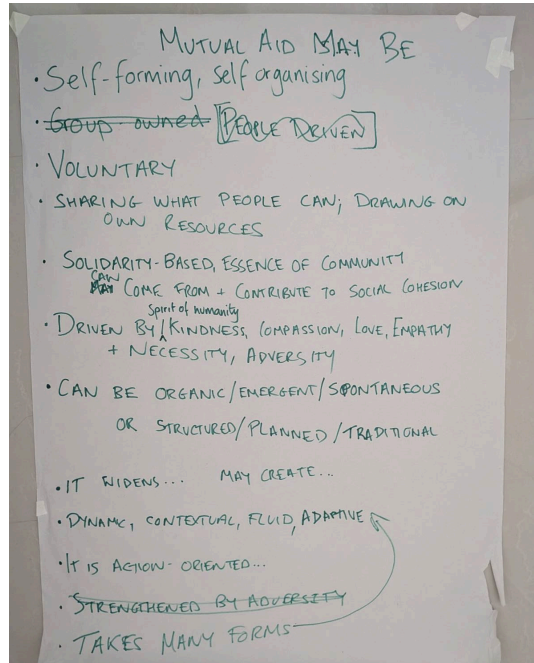 MUTUAL AID MAY BE
· Self-forming, Self organising
· Group owned [PEOPLE DRIVEN]
· VOLUNTARY
· SHARING WHAT PEOPLE CAN; DRAWING ON
OWN RESOURCES
· SOLIDARITY-BASED, ESSENCE OF COMMUNITY
CAN
MAY COME FROM + CONTRIBUTE TO SOCIAL COHESION
Spirit of humanity
· DRIVEN BY KINDNESS, COMPASSION, LOVE, EMPATHY
+ NECESSITY, ADVERSITY
· CAN BE ORGANIC/EMERGENT/SPONTANEOUS
OR STRUCTURED/PLANNED/TRADITIONAL
· IT WIDENS... MAY CREATE...
· DYNAMIC, CONTEXTUAL, FLUID, ADAPTIVE
· IT IS ACTION-ORIENTED...
· STRENGTHENED BY ADVERSITY
· TAKES MANY FORMS